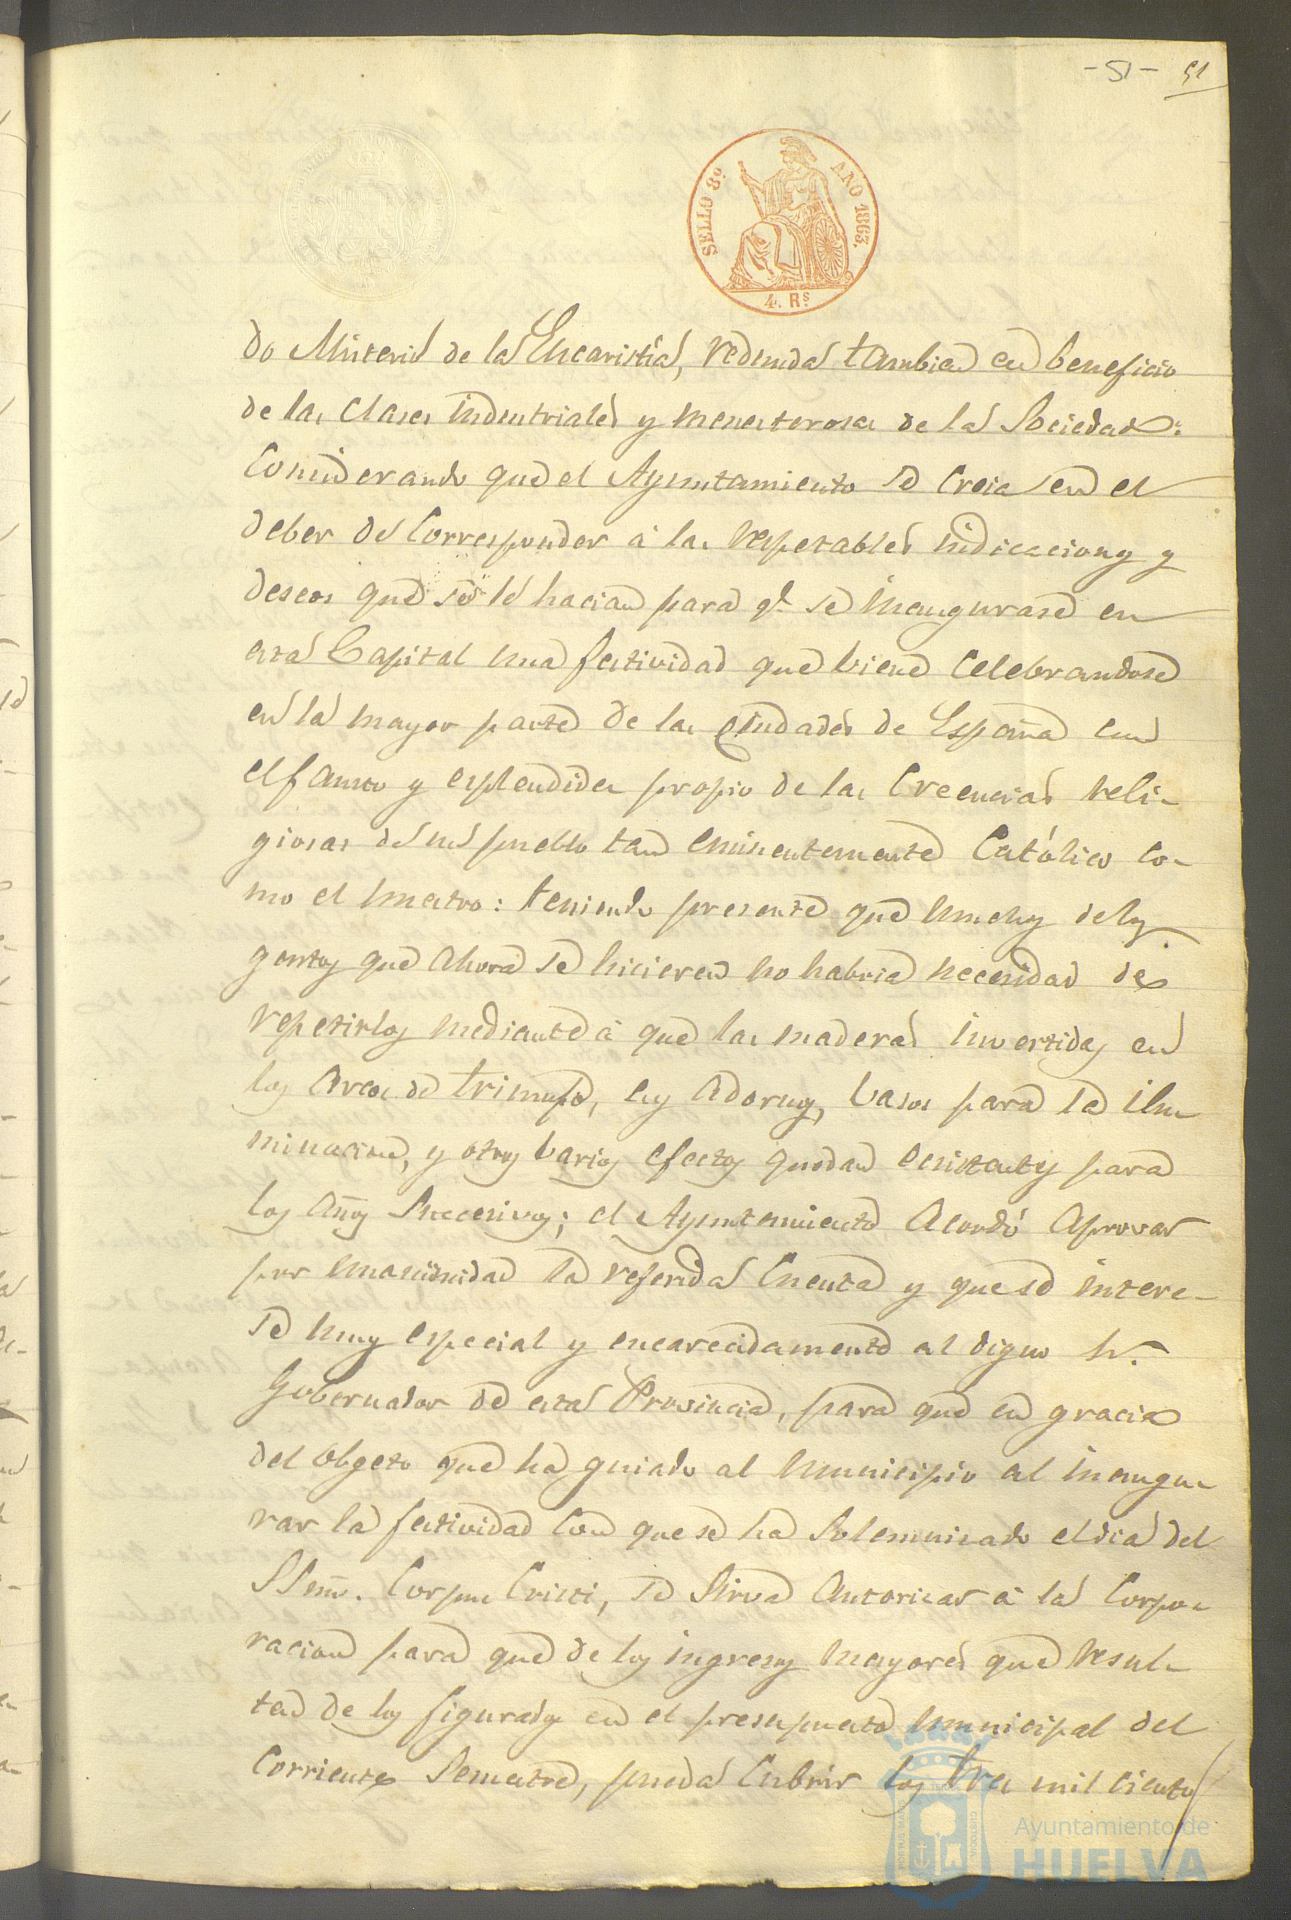 -51- 51
SELLO 8º. AÑO 1863.
4. Rs
do Misterio de la Eucaristía, redunda tambien en beneficio
de las clases industriales y menesterosas de la Sociedad:
Considerando que el Ayuntamiento se creia en el
deber de corresponder á las respetables indicaciones y
deseos que se le hacian para qe. se inaugurase en
esta Capital una festividad que viene celebrandose
en la mayor parte de las Ciudades de España con
el fausto y esplendidez propio de las creencias reli-
giosas de un pueblo tan eminentemente Católico co-
mo el nuestro: teniendo presente que muchos de los
gastos que ahora se hicieren no habria necesidad de
repetirlos mediante á que las maderas invertidas en
los Arcos de triunfo, sus adornos, vasos para la ilu-
minacion, y otros varios efectos quedan existentes para
los años sucesivos; el Ayuntamiento acordó aprovar
por unanimidad la referida Cuenta y que se intere-
se muy especial y encarecidamente al digno Sr.
Gobernador de esta Provincia, para que en gracia
del obgeto que ha guiado al Municipio al inaugu-
rar la festividad con que se ha solemnizado el dia del
SSmo. Corpus Cristi, se sirva autorizar á la Corpo-
racion para que de los ingresos mayores que resul-
ten de los figurados en el presupuesto municipal del
corriente Semestre, pueda cubrir los tres mil ciento
Ayuntamiento de
HUELVA